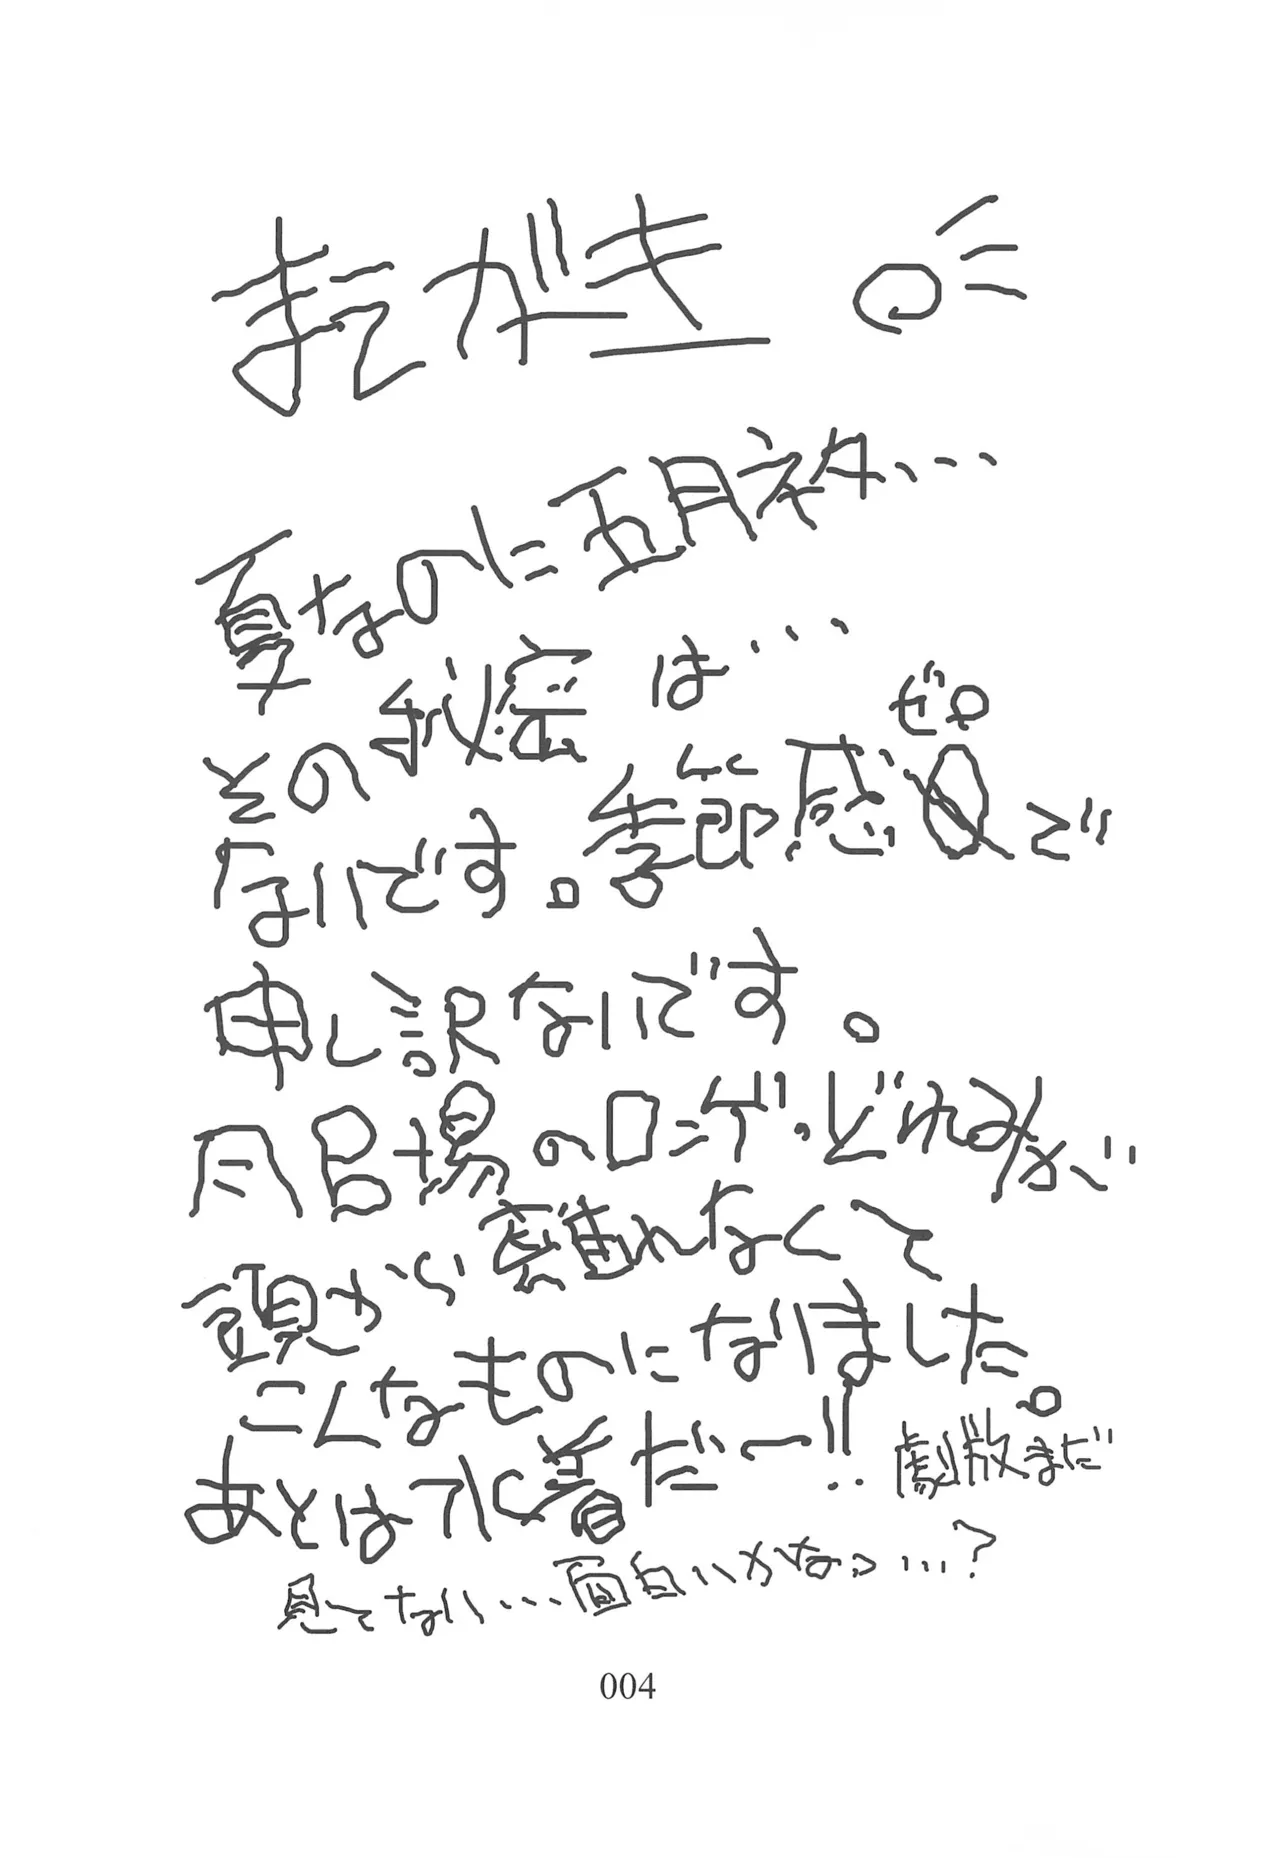 まえがき
夏なのに五月ネタ…
その秘密は…
ないです。季節感0で
ゼロ
申し訳ないです。
同号場のロンゲ・どれみが
頭から離れなくて
こんなものになりました。
あとは水着だー!!
劇散まだ
見てない…面白いかなっ…?
004